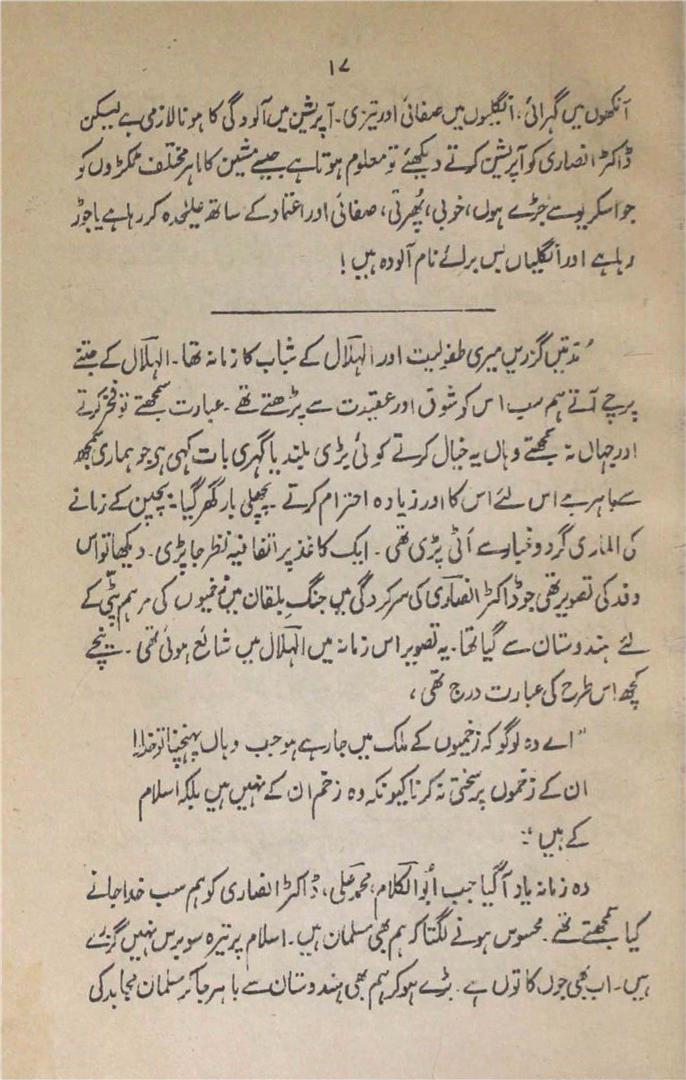 ۱۷
آنکھوں میں گہرائی، انگلیوں میں صفائی اور تیزی۔ آپریشن میں آلودگی کا ہونا لازمی ہے لیکن
ڈاکٹر انصاری کو آپریشن کرتے دیکھئے تو معلوم ہوتا ہے جیسے مشین کا ماہر مختلف ٹکڑوں کو
جو اسکریو سے جڑے ہوں، خوبی، پُھرتی، صفائی اور اعتماد کے ساتھ علیٰحدہ کر رہا ہے یا جوڑ
رہا ہے اور انگلیاں بس برائے نام آلودہ ہیں!
مُدتیں گزریں میری طفولیت اور الہلال کے شباب کا زمانہ تھا۔ الہلال کے جتنے
پرچے آتے ہم سب اس کو شوق اور عقیدت سے پڑھتے تھے۔ عبارت سمجھتے تو فخر کرتے
اور جہاں نہ سمجھتے وہاں یہ خیال کرتے کوئی بڑی بلند یا گہری بات کہی ہے جو ہماری سمجھ
سے باہر ہے اس لئے اس کا اور زیادہ احترام کرتے۔ پچھلی بار گھر گیا۔ بچپن کے زمانے
کی الماری گرد و غبار سے اَٹی پڑی تھی۔ ایک کاغذ پر اتفاقیہ نظر جا پڑی۔ دیکھا تو اس
وفد کی تصویر تھی جو ڈاکٹر انصاری کی سرکردگی میں جنگِ بلقان میں زخمیوں کی مرہم پٹی کے
لئے ہندوستان سے گیا تھا۔ یہ تصویر اس زمانہ میں الہلال میں شائع ہوئی تھی۔ نیچے
کچھ اس طرح کی عبارت درج تھی،
"اے وہ لوگو کہ زخمیوں کے ملک میں جا رہے ہو جب وہاں پہنچنا تو خدارا
ان کے زخموں پر سختی نہ کرنا کیونکہ وہ زخم ان کے نہیں ہیں بلکہ اسلام
کے ہیں"۔
وہ زمانہ یاد آ گیا جب ابوالکلام، محمد علی، ڈاکٹر انصاری کو ہم سب خدا جانے
کیا سمجھتے تھے۔ محسوس ہونے لگتا کہ ہم بھی مسلمان ہیں۔ اسلام پر تیرہ سو برس نہیں گزرے
ہیں۔ اب بھی جوں کا توں ہے۔ بڑے ہو کر ہم بھی ہندوستان سے باہر جا کر مسلمان مجاہد کی